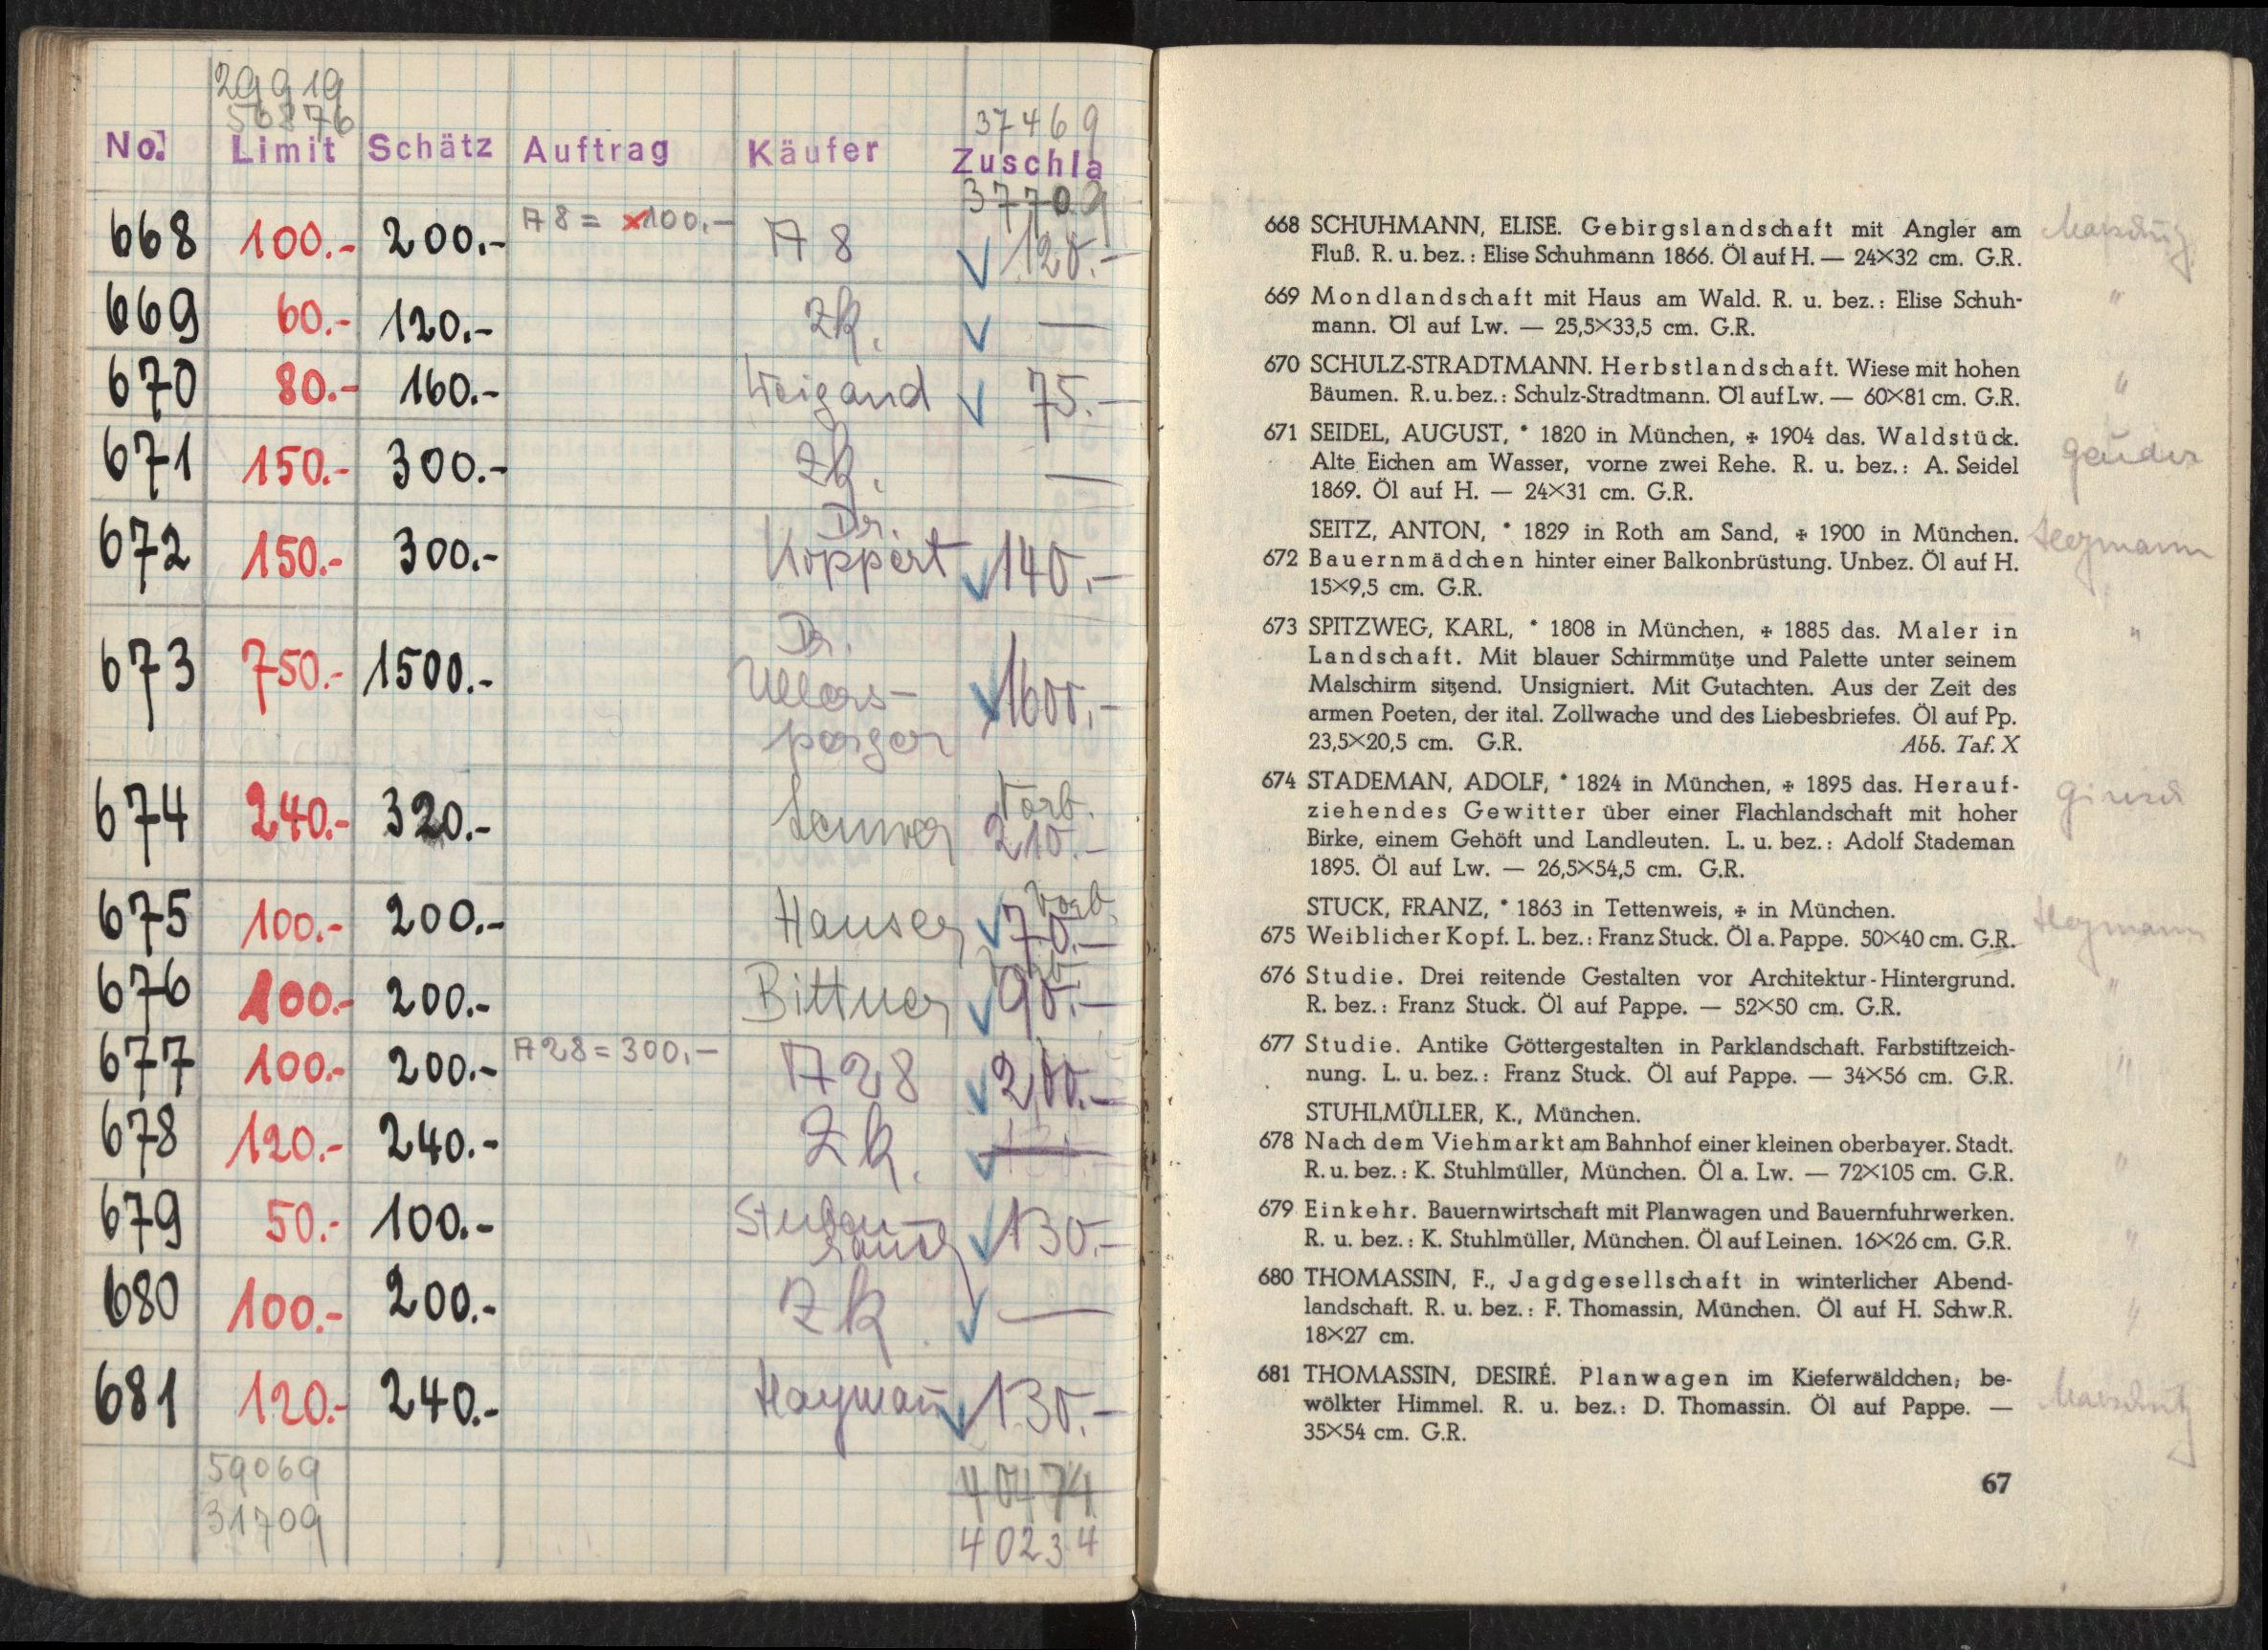 29919
56876
37469
No. Limit Schätz Auftrag Käufer Zuschla
37709
668 100.- 200.- A 8 = x100.- A 8 120.-
669 60.- 120.- Zk. —
670 80.- 160.- Weigand 75.-
671 150.- 300.- Zk. —
672 150.- 300.- Dr. Koppert 140.-
673 750.- 1500.- Dr.
Ullers-
perger 1600.-
674 240.- 320.- Vorb.
210.-
675 100.- 200.- Hauser Vorb.
70.-
676 100.- 200.- Bittner Vorb.
90.-
677 100.- 200.- A 28 = 300.- A 28 200.-
678 120.- 240.- Zk.
679 50.- 100.- Stuben-
rauch 130.-
680 100.- 200.- Zk. —
681 120.- 240.- Heymann 130.-
59069
31709
40474
40234
668 SCHUHMANN, ELISE. Gebirgslandschaft mit Angler am
Fluß. R. u. bez.: Elise Schuhmann 1866. Öl auf H. — 24×32 cm. G.R.
669 Mondlandschaft mit Haus am Wald. R. u. bez.: Elise Schuh- "
mann. Öl auf Lw. — 25,5×33,5 cm. G.R.
670 SCHULZ-STRADTMANN. Herbstlandschaft. Wiese mit hohen "
Bäumen. R. u. bez.: Schulz-Stradtmann. Öl auf Lw. — 60×81 cm. G.R.
671 SEIDEL, AUGUST, * 1820 in München, ✠ 1904 das. Waldstück.
Alte Eichen am Wasser, vorne zwei Rehe. R. u. bez.: A. Seidel
1869. Öl auf H. — 24×31 cm. G.R.
SEITZ, ANTON, * 1829 in Roth am Sand, ✠ 1900 in München. Heymann
672 Bauernmädchen hinter einer Balkonbrüstung. Unbez. Öl auf H.
15×9,5 cm. G.R.
673 SPITZWEG, KARL, * 1808 in München, ✠ 1885 das. Maler in "
Landschaft. Mit blauer Schirmmütze und Palette unter seinem
Malschirm sitzend. Unsigniert. Mit Gutachten. Aus der Zeit des
armen Poeten, der ital. Zollwache und des Liebesbriefes. Öl auf Pp.
23,5×20,5 cm. G.R. Abb. Taf. X
674 STADEMAN, ADOLF, * 1824 in München, ✠ 1895 das. Herauf-
ziehendes Gewitter über einer Flachlandschaft mit hoher
Birke, einem Gehöft und Landleuten. L. u. bez.: Adolf Stademan
1895. Öl auf Lw. — 26,5×54,5 cm. G.R.
STUCK, FRANZ, * 1863 in Tettenweis, ✠ in München. Heymann
675 Weiblicher Kopf. L. bez.: Franz Stuck. Öl a. Pappe. 50×40 cm. G.R.
676 Studie. Drei reitende Gestalten vor Architektur-Hintergrund. "
R. bez.: Franz Stuck. Öl auf Pappe. — 52×50 cm. G.R.
677 Studie. Antike Göttergestalten in Parklandschaft. Farbstiftzeich- "
nung. L. u. bez.: Franz Stuck. Öl auf Pappe. — 34×56 cm. G.R.
STUHLMÜLLER, K., München.
678 Nach dem Viehmarkt am Bahnhof einer kleinen oberbayer. Stadt. "
R. u. bez.: K. Stuhlmüller, München. Öl a. Lw. — 72×105 cm. G.R.
679 Einkehr. Bauernwirtschaft mit Planwagen und Bauernfuhrwerken. "
R. u. bez.: K. Stuhlmüller, München. Öl auf Leinen. 16×26 cm. G.R.
680 THOMASSIN, F., Jagdgesellschaft in winterlicher Abend- "
landschaft. R. u. bez.: F. Thomassin, München. Öl auf H. Schw.R.
18×27 cm.
681 THOMASSIN, DESIRÉ. Planwagen im Kieferwäldchen; be-
wölkter Himmel. R. u. bez.: D. Thomassin. Öl auf Pappe. —
35×54 cm. G.R.
67